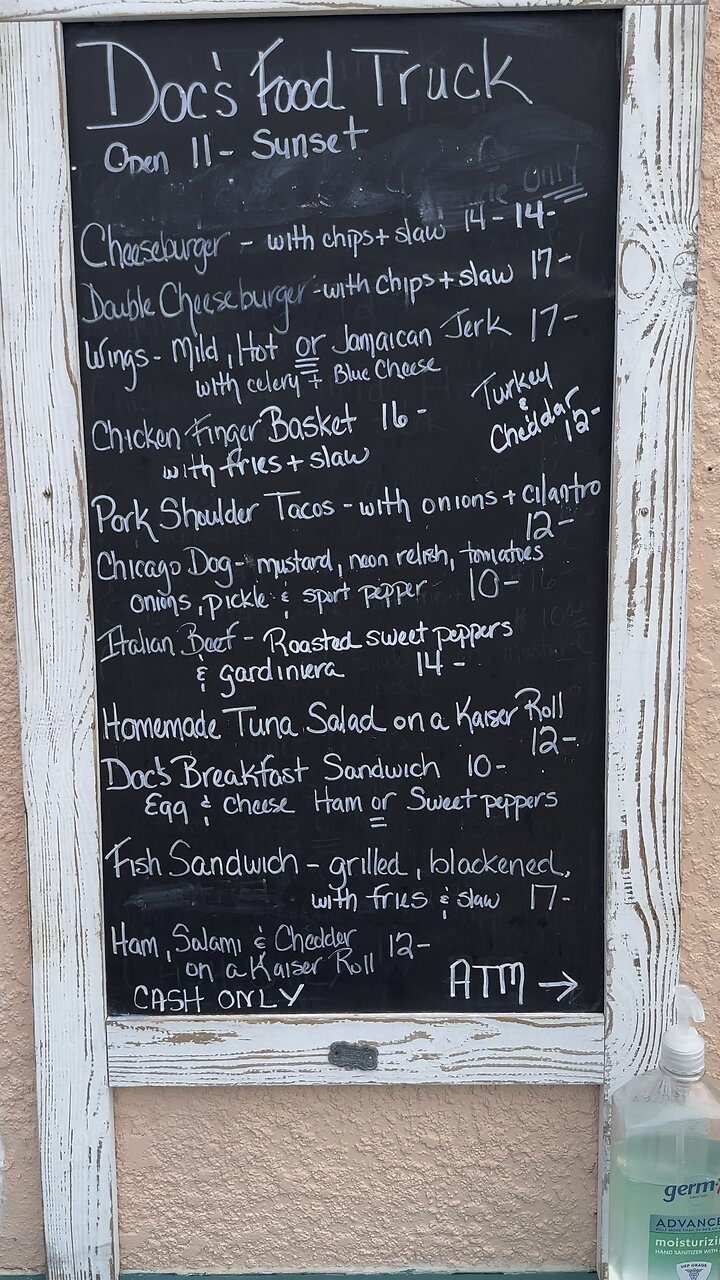 Doc's Food Truck
Open 11- Sunset
Only
Cheeseburger - with chips + slaw 14- 14-
Double Cheeseburger - with chips + slaw 17-
Wings - Mild, Hot or Jamaican Jerk 17-
with celery + Blue Cheese
Turkey
&
Cheddar
12-
Chicken Finger Basket 16-
with fries + slaw
Pork Shoulder Tacos - with onions + cilantro
12-
Chicago Dog - mustard, neon relish, tomatoes
onions, pickle & sport pepper 10-
Italian Beef - Roasted sweet peppers
& gardiniera 14-
Homemade Tuna Salad on a Kaiser Roll
12-
Doc's Breakfast Sandwich 10-
Egg & cheese Ham or Sweet peppers
Fish Sandwich - grilled, blackened,
with fries & slaw 17-
Ham, Salami & Cheddar 12-
on a Kaiser Roll
CASH ONLY
ATM →
germ-
ADVANCE
moisturizi
HAND SANITIZER WITH
USP GRADE